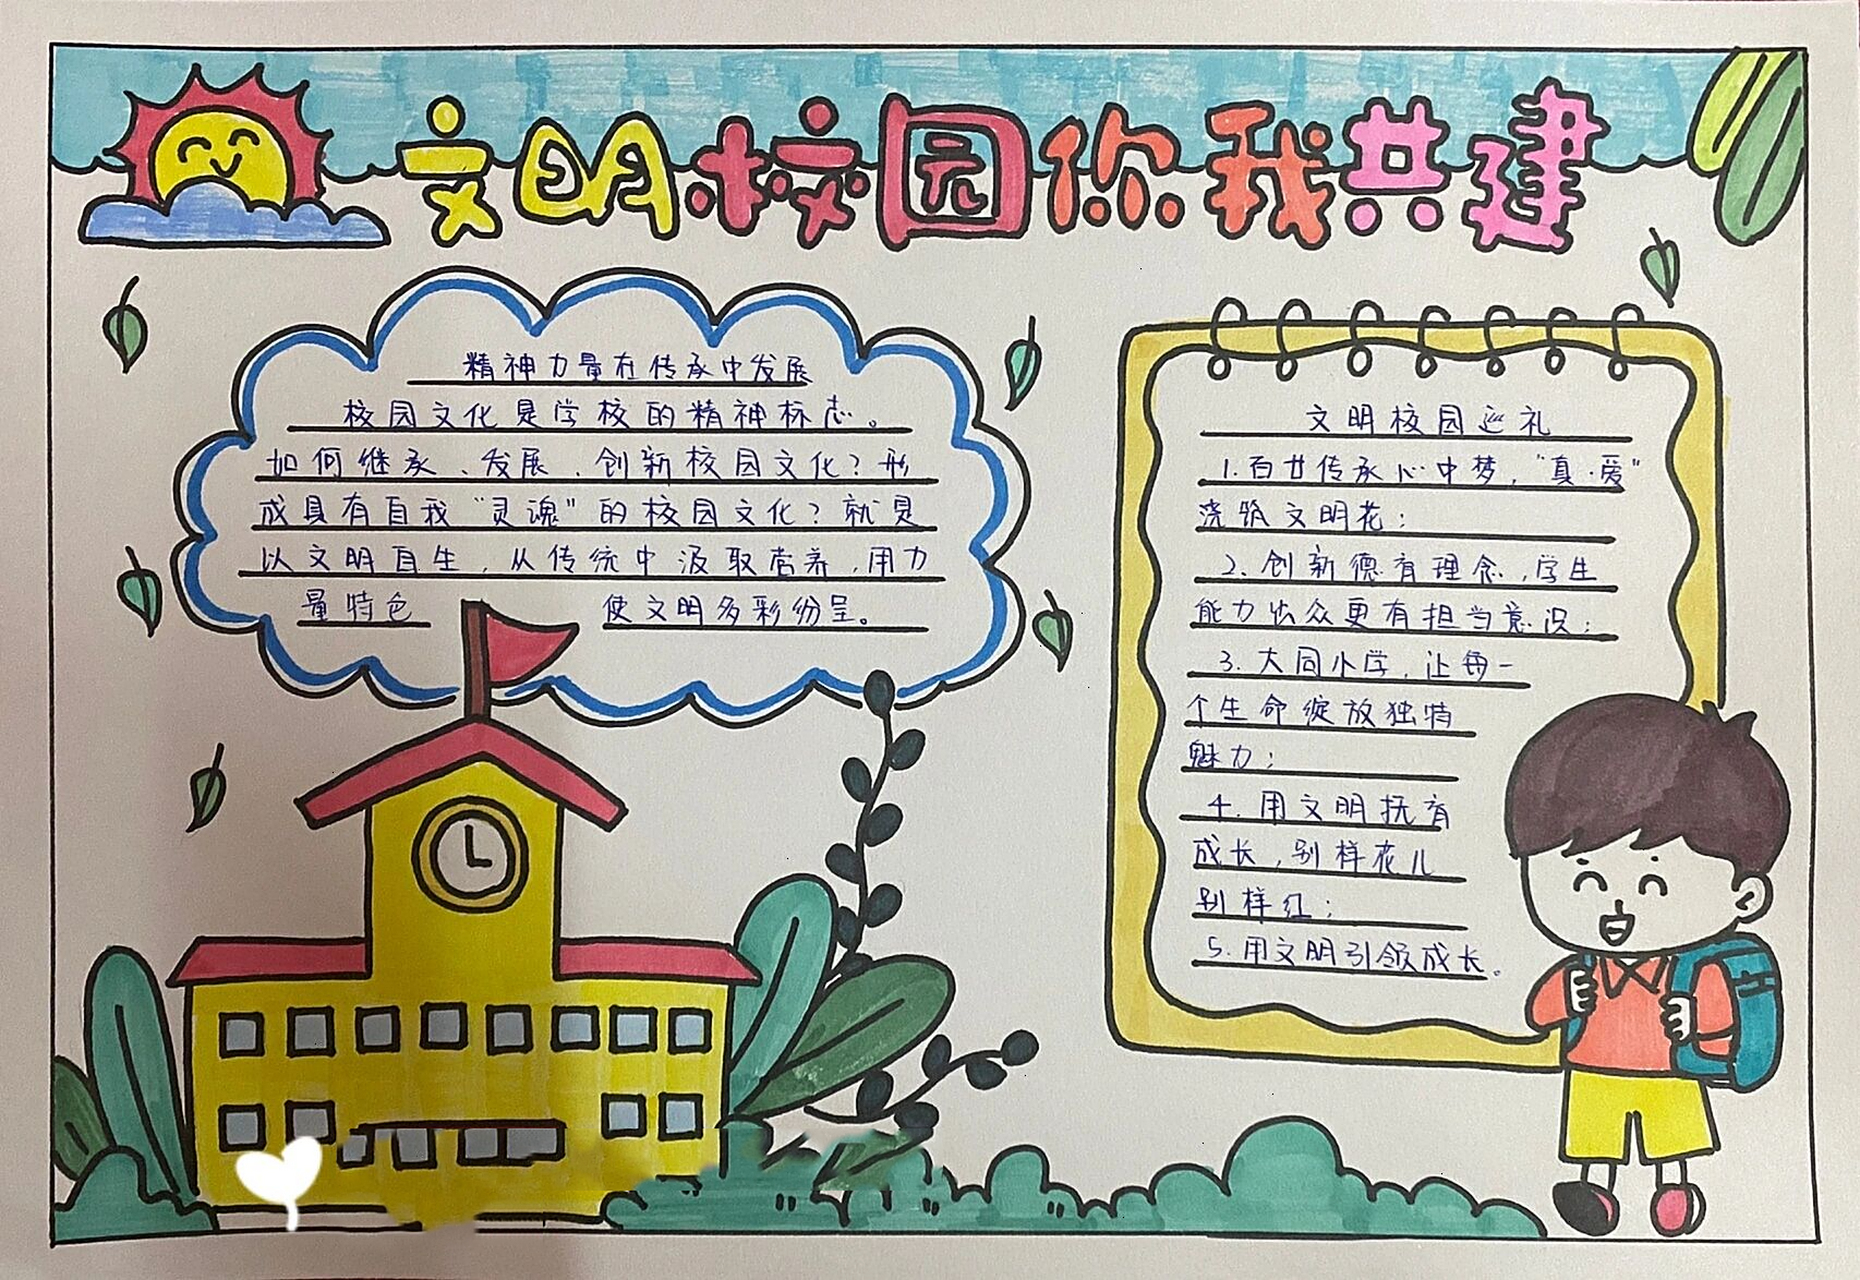 文明校园你我共建
精神力量在传承中发展
校园文化是学校的精神标志。
如何继承、发展、创新校园文化？形
成具有自我“灵魂”的校园文化？就是
以文明自生，从传统中汲取营养，用力
量特色 使文明多彩纷呈。
文明校园巡礼
1.百廿传承心中梦，“真·爱”
浇筑文明花；
2.创新德育理念，学生
能力出众更有担当意识；
3.大同小学，让每一
个生命绽放独特
魅力；
4.用文明抚育
成长，别样花儿
别样红；
5.用文明引领成长。